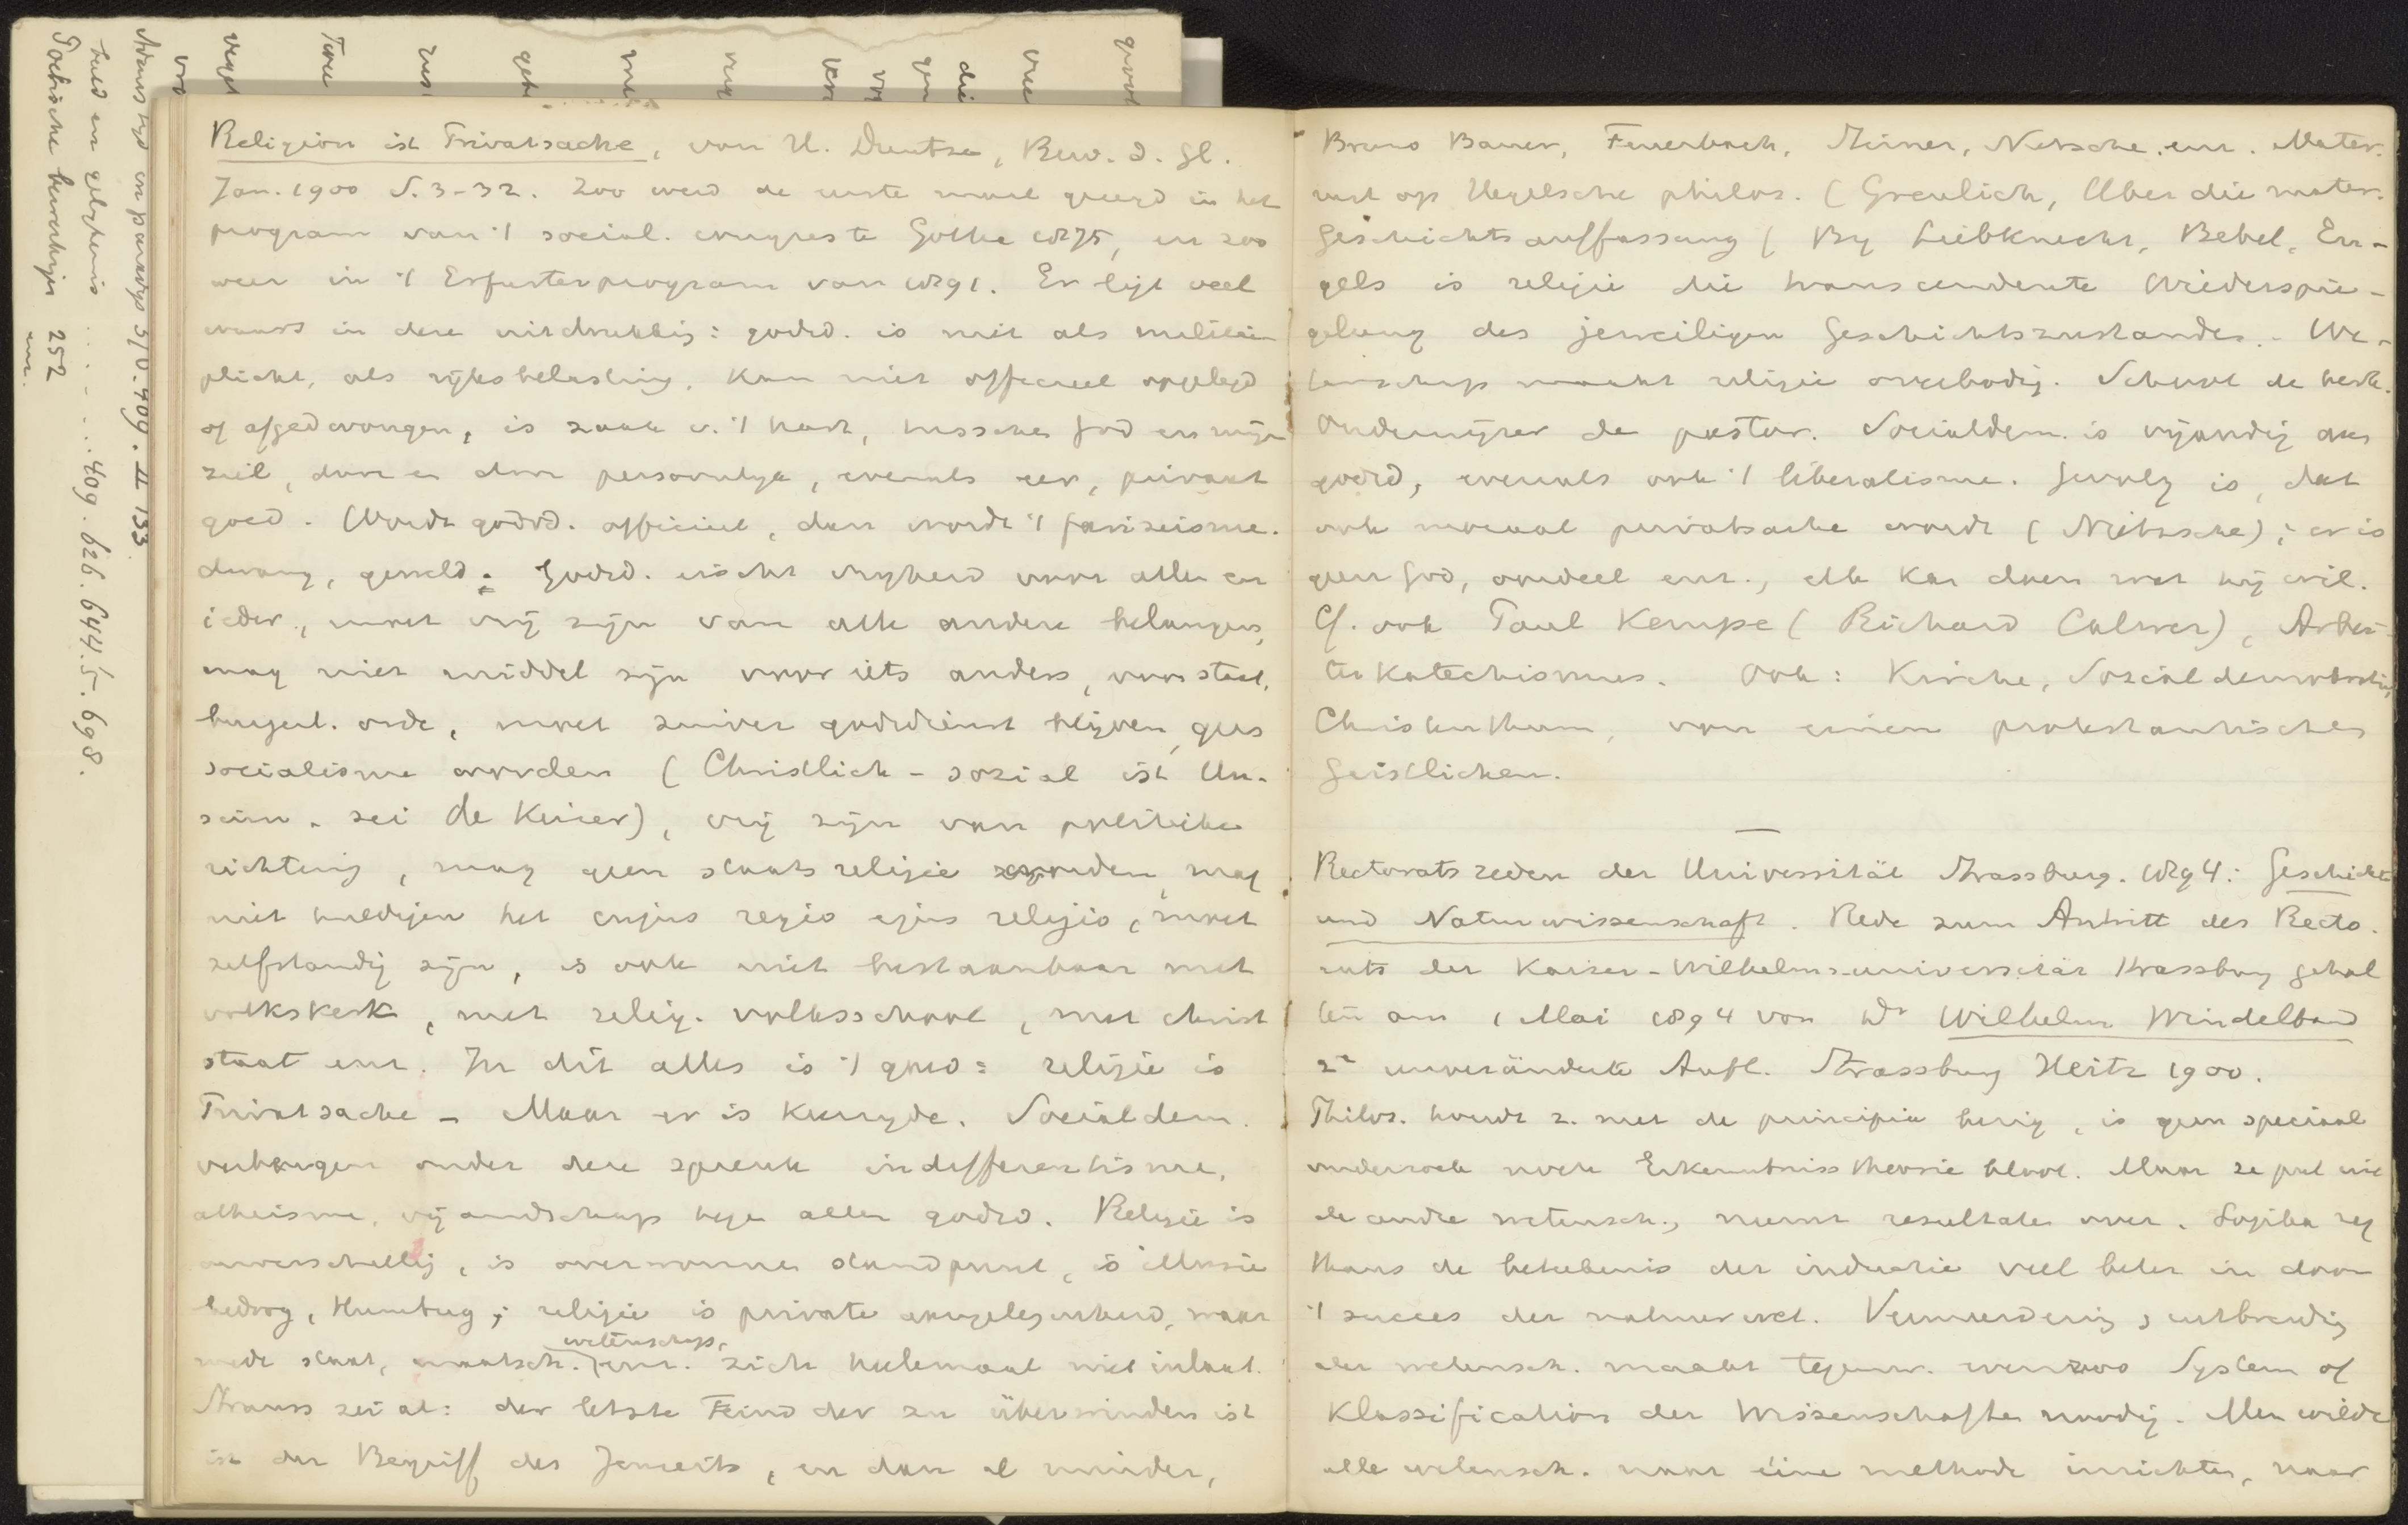 Religion ist Privatsache, von H. Duntze, Bew. d. Gl.
Jan. 1900 S. 3-32. Zoo werd de eerste maal gezegd in het
program van 't social. congres te Gotha 1875, en zoo
weer in 't Erfurterprogram van 1891. Er ligt veel
waars in deze uitdrukking: godsd. is niet als militaire
plicht, als rijksbelasting, kan niet officieel opgelegd
of afgedwongen, is zaak v. 't hart, tusschen God en mijn
ziel, door en door persoonlijk, evenals eer, privaat
goed. Wordt godsd. officieel, dan wordt 't farizeisme.
dwang, geweld; Godsd. eischt vryheid voor alle en
ieder, moet vrij zijn van alle andere belangen,
mag niet middel zijn voor iets anders, voor staat,
burgerl. orde, moet zuiver godsdienst blijven, geen
socialisme worden (Christlich-sozial ist Un-
sinn. zei de Keizer), vrij zijn van politieke
richting, mag geen staatsreligie worden, mag
niet huldigen het cujus regio ejus religio, moet
zelfstandig zijn, is ook niet bestaanbaar met
volkskerk, met relig. volksschool, met christ
staat enz. In dit alles is 't goed: religie is
Privatsache - Maar er is keerzyde. Socialdem.
verbergen onder deze spreuk indifferentisme,
atheisme, vijandschap tegen allen godsd. Religie is
onverschillig, is overwonnen standpunt, is illusie
bedrog, Humbug; religie is private aangelegenheid, waar
mede staat, maatsch. wetenschap, enz. zich heelemaal niet inlaat.
Strauss zei al: der letzte Feind der zu überwinden ist
ist der Begriff des Jenseits, en dan al minder,
Bruno Bauer, Feuerbach, Stirner, Nietsche. enz. Mater.
rust op Hegelsche philos. (Greulich, Uber die mater.
Geschichtsauffassung) By Liebknecht, Bebel, En-
gels is religie die transcendente Wiederspie-
gelung des jeweiligen Geschichtszustandes. We-
tenschap maakt religie overbodig. School de kerk.
Onderwijzer de pastor. Socialdem. is vijandig aan
godsd, evenals ook 't liberalisme. Gevolg is, dat
ook moraal privatsache wordt (Nietzsche); er is
geen God, oordeel enz., elk kan doen wat hij wil.
Cf. ook Paul Kempe (Richard Calwer), Arbei-
terkatechismus. Ook: Kirche, Sozialdemokratie,
Christenthum, von einem protestantischen
Geistlichen.
Rectoratsreden der Universität Strassburg. 1894: Geschichte
und Naturwissenschaft. Rede zum Antritt des Recto.
rats der Kaiser-Wilhelms-universität Strassburg gehal
ten am 1 Mai 1894 von Dr Wilhelm Windelband
2e unveränderte Aufl. Strassburg Heitz 1900.
Philos. houdt z. met de principia bezig, is geen speciaal
onderzoek noch Erkenntnisstheorie bloot. Maar ze put uit
de andre wetensch., neemt resultaten over. Logika zag
thans de beteekenis der inductie veel beter in door
't succes der natuurwet. Vermeerdering & uitbreiding
der wetensch. maakt tegenw. evenzoo System of
Klassification der Wissenschaften noodig. Men wilde
alle wetensch. naar éine methode inrichten, naar
Poëtische 252
enz.
409. 626. 644.5. 698.
409. II 133